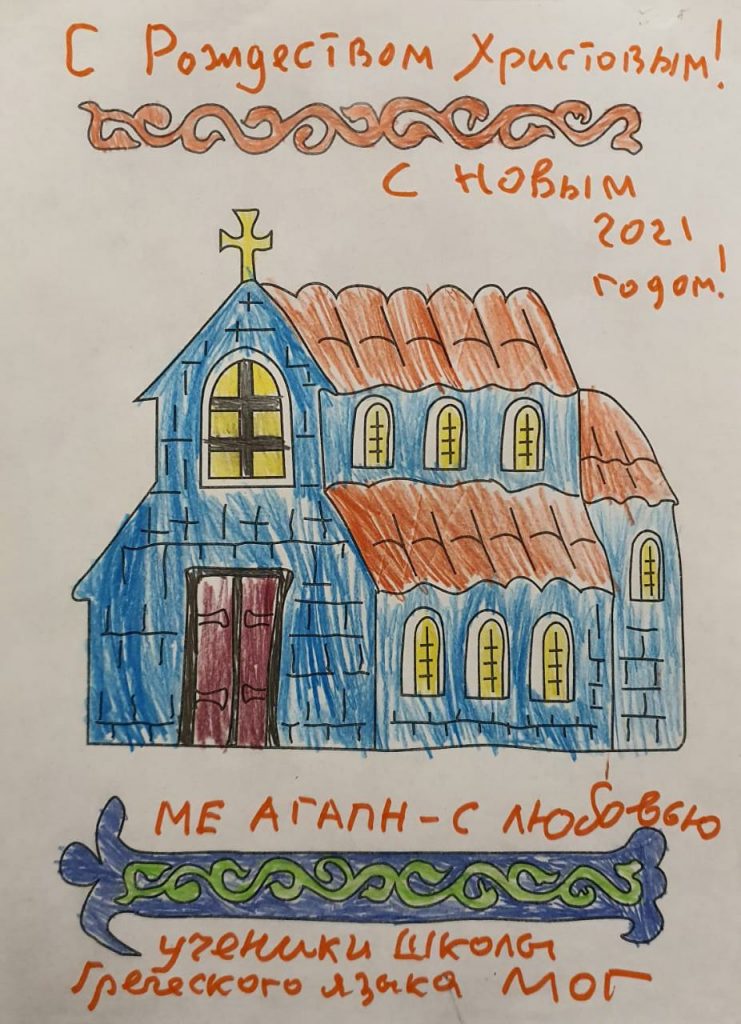 С Рождеством Христовым!
С Новым
2021
годом!
МЕ АГАПН - С любовью
ученики школы
Греческого языка МОГ